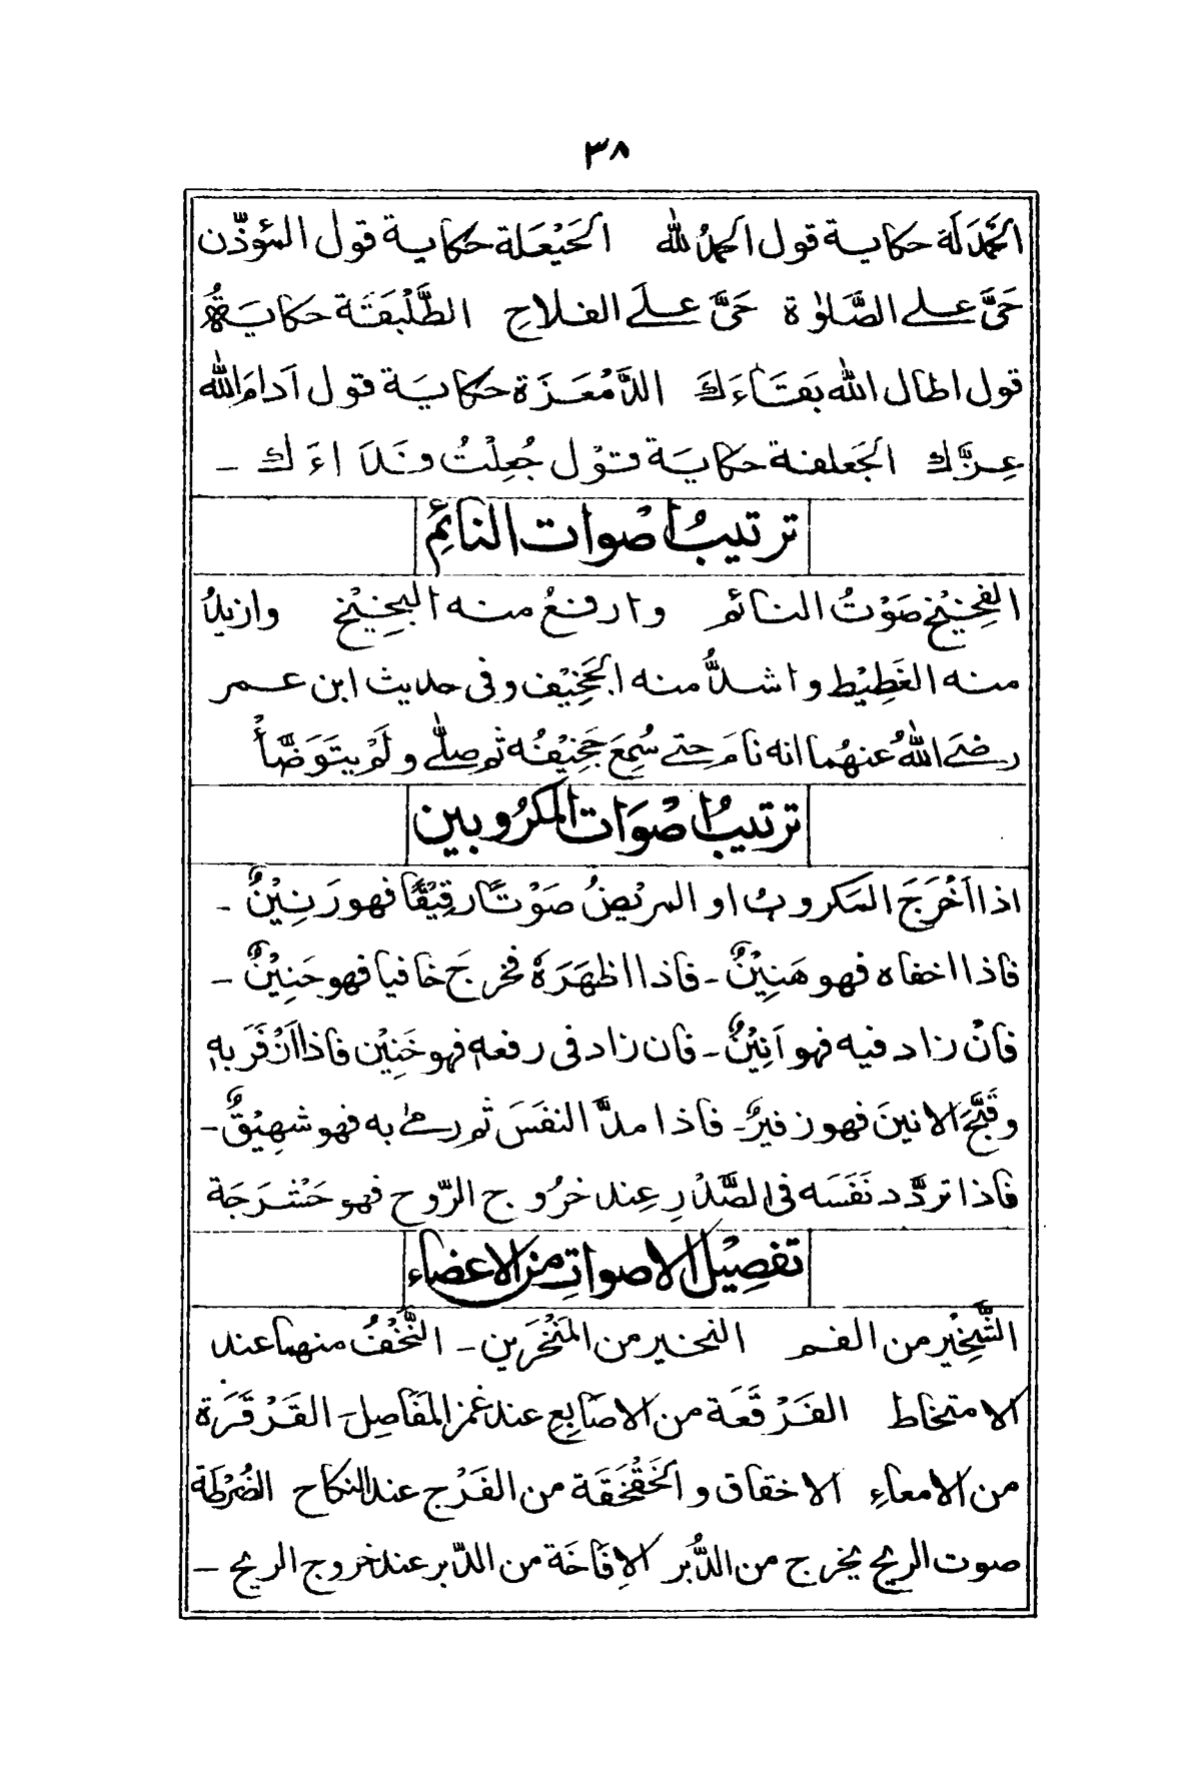 ٣٨
الحَمْدَلَة حكاية قول الحمدُ لله الحَيْعَلة حكاية قول المؤذّن
حَيَّ على الصَّلٰوة حَيَّ علَى الفلاحِ الطَّلْبَقَة حكايَةُ
قول اطال الله بَقَاءَكَ الدَّمْعَزَة حكايَة قول اَدامَ الله
عِزَّكَ الجَعلفة حكايَة قوْل جُعِلْتُ فَدَاءَكَ -
ترتيبُ اصْوات النائِمِ
الفِخِيْخ صَوْتُ النائم وارفعُ منه البِخِيْخ وازيدُ
منه الغَطِيْط واشدُّ منه الجَخِيْف وفى حديث ابن عمر
رضَى اللهُ عنهُما انه نامَ حتى سُمِعَ جَخِيْفُه ثم صلّى ولَمْ يتَوَضَّأْ
ترتيبُ اصْوَات المكرُوبين
اذا اَخْرَجَ المَكروبُ او المرْيضُ صَوْتًا رقِيْقًا فهو رَنِيْنٌ -
فاذا اخفاه فهو هَنِيْنٌ - فاذا اظهَرَهٗ فخرجَ خافيا فهو حَنِيْنٌ -
فانْ زاد فيه فهو اَنِيْنٌ - فان زاد فى رفعه فهو خَنِيْن فاذا اَزْفَرَ بِهٖ
وقَبَّحَ الانينَ فهو زفيرٌ - فاذا مدَّ النفَسَ ثم رمى به فهو شهِيْقٌ -
فاذا تردَّد نَفَسَه فى الصَّدْرِ عِند خرُوج الرّوح فهو حَشْرَجَة
تفصِيْل الاصواتِ من الاعضاء
الشَّخِيْر من الفم النخير من المَنْخَرَين - النَّخْفُ منهما عند
الامتخاط الفَرْقَعَة من الاصَابِع عند غمز المَفَاصِل - القَرْقَرَة
من الامعاءِ الاخقاق والخَقْخَقَة من الفَرْج عند النكاح الضُرْطَة
صوت الريح يخرج من الدُّبر الاِفَاخَة من الدّبر عند خروج الريح -